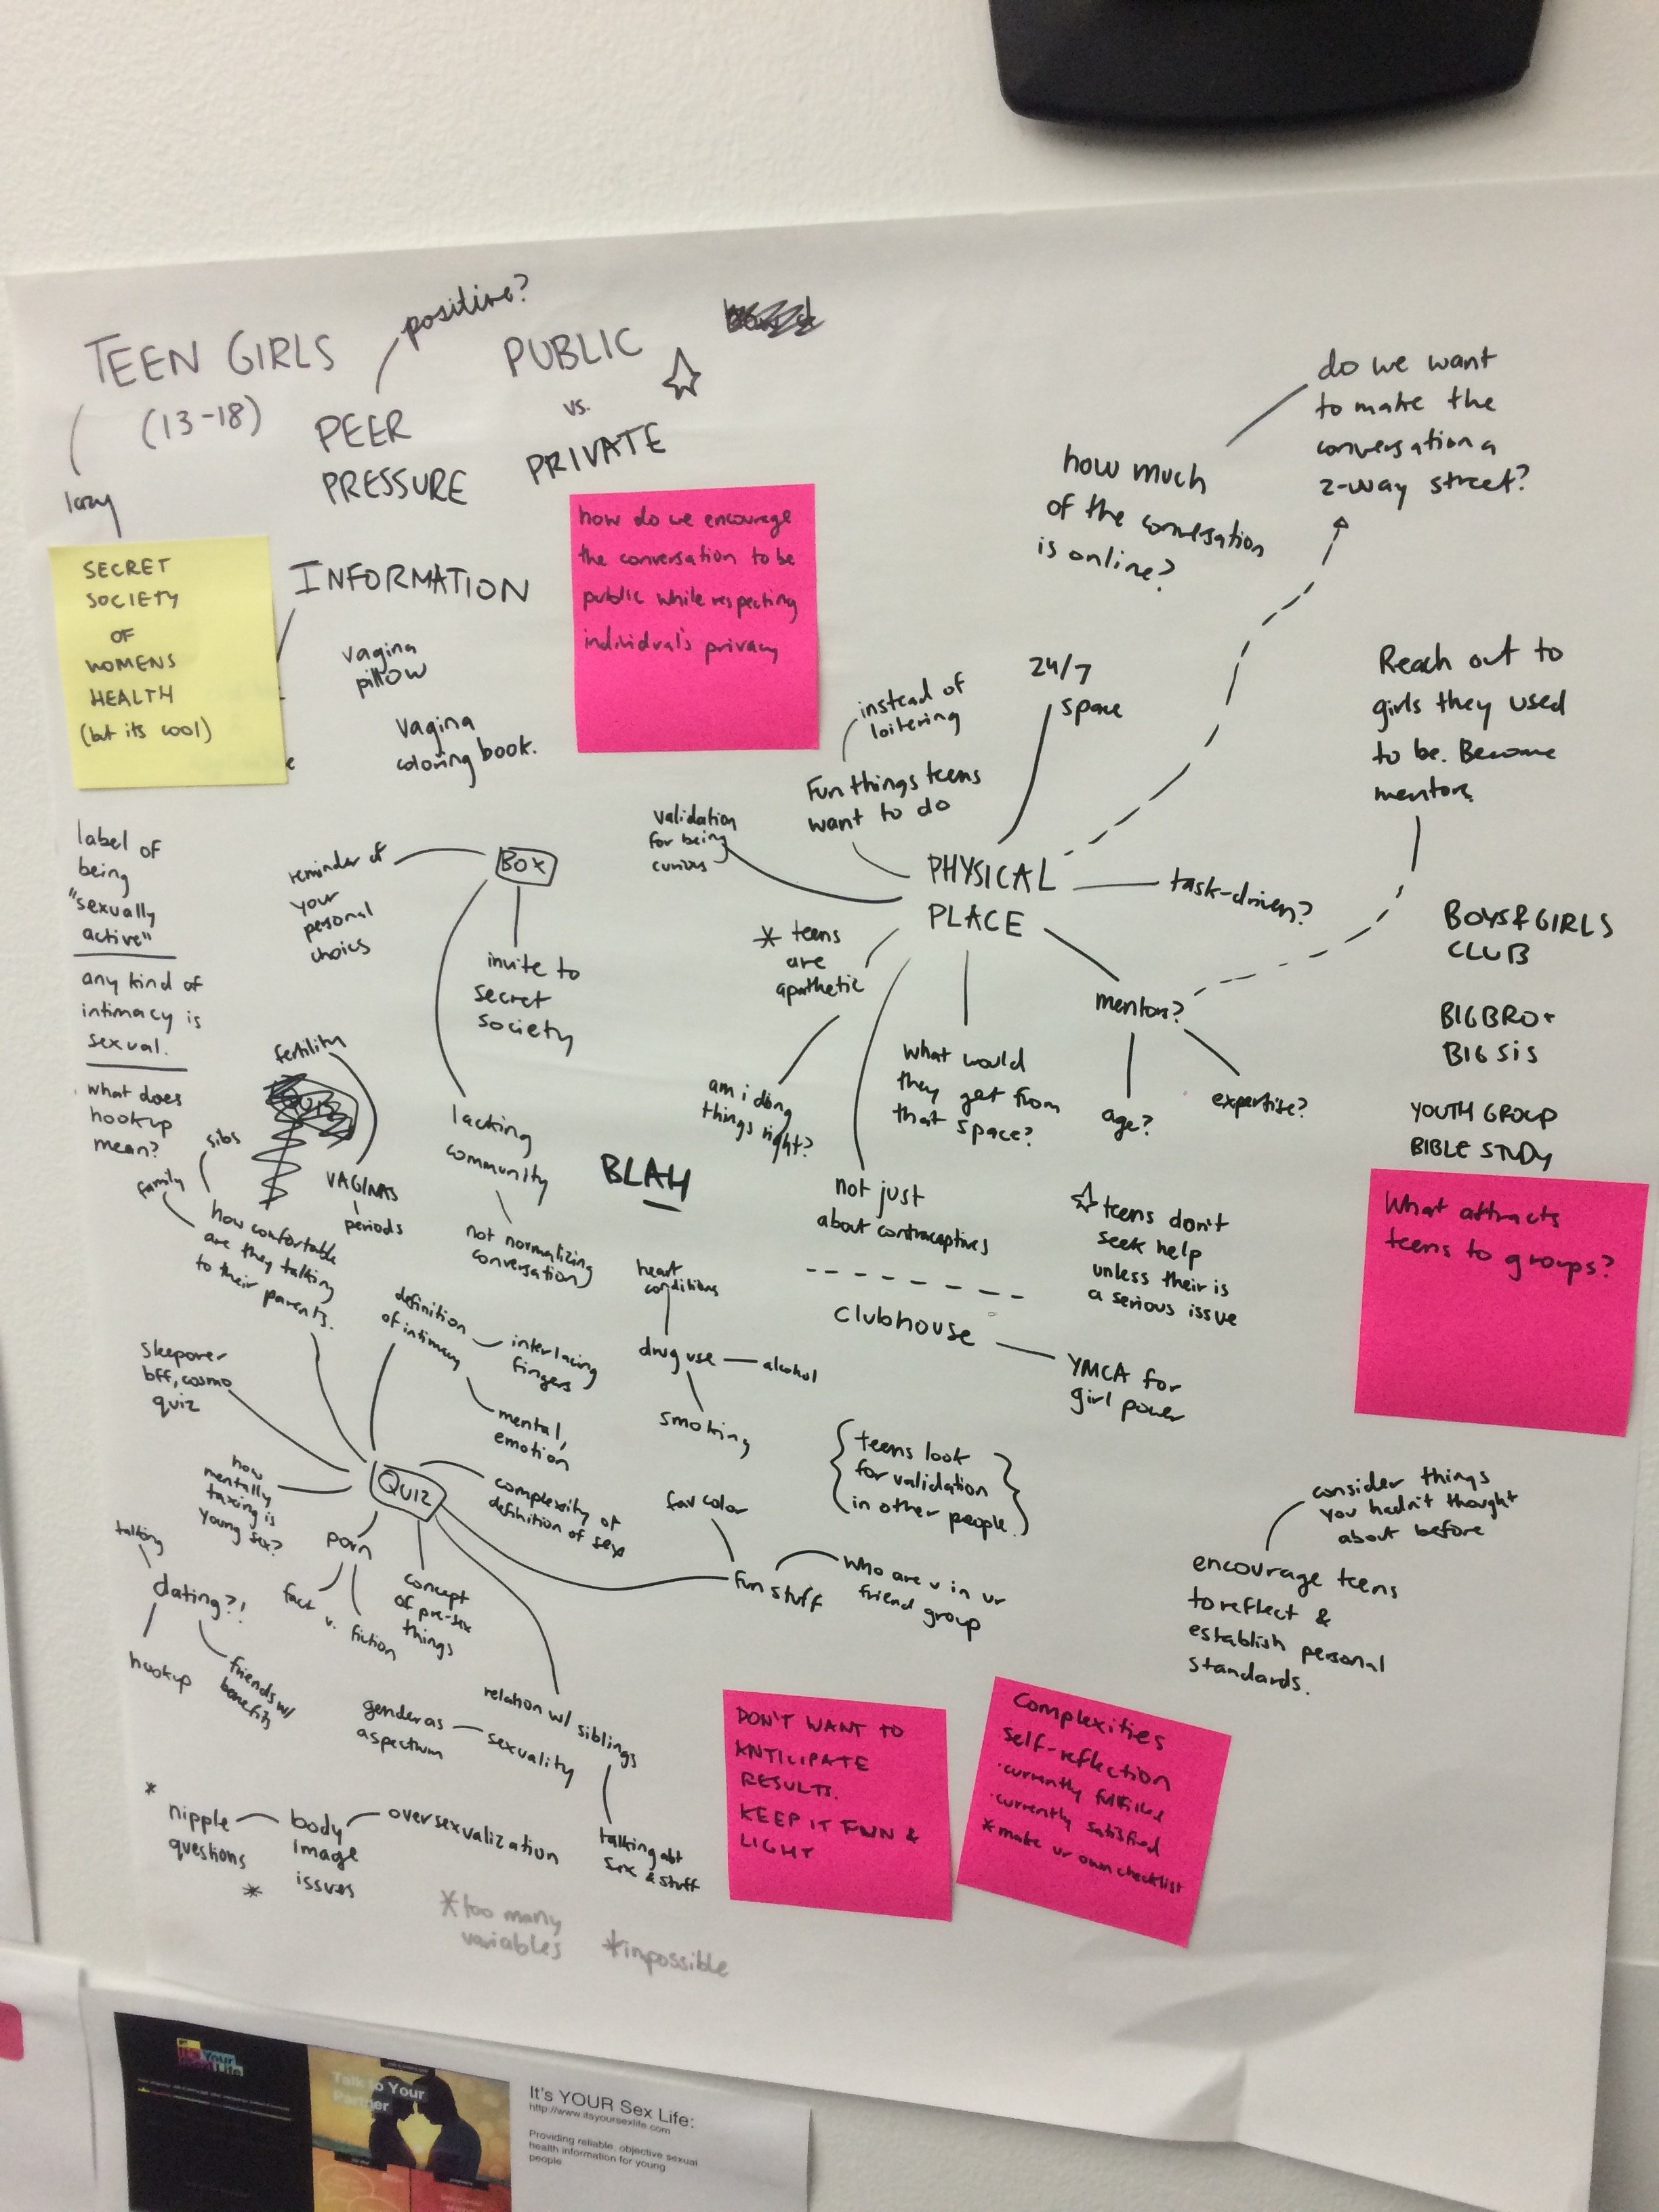 TEEN GIRLS
(13-18)
lazy
positive?
PEER
PRESSURE
PUBLIC
vs.
PRIVATE
SECRET
SOCIETY
OF
WOMENS
HEALTH
(but its cool)
INFORMATION
vagina
pillow
vagina
coloring book.
how do we encourage
the conversation to be
public while respecting
individual's privacy
how much
of the conversation
is online?
do we want
to make the
conversation a
2-way street?
Reach out to
girls they used
to be. Become
mentors
24/7
space
instead of
loitering
Fun things teens
want to do
validation
for being
curious
PHYSICAL
PLACE
task-driven?
* teens
are
apathetic
am i doing
things right?
what would
they get from
that space?
mentors?
age?
expertise?
not just
about contraceptives
clubhouse
YMCA for
girl power
☆ teens don't
seek help
unless their is
a serious issue
BOYS & GIRLS
CLUB
BIG BRO +
BIG SIS
YOUTH GROUP
BIBLE STUDY
What attracts
teens to groups?
label of
being
"sexually
active"
any kind of
intimacy is
sexual.
what does
hookup
mean?
BOX
reminder of
your
personal
choics
invite to
secret
society
lacking
community
not normalizing
conversation
BLAH
fertility
VAGINAS
periods
sibs
family
how comfortable
are they talking
to their parents.
definition
of intimacy
interlacing
fingers
mental,
emotion
heart
conditions
drug use
alcohol
smoking
sleepover
bff, cosmo
quiz
QUIZ
how
mentally
taxing is
young sex?
complexity of
definition of sex
porn
fact v. fiction
concept
of pre-sex
things
talking
dating?!
hookup
friends w/
benefits
fav color
fun stuff
who are u in ur
friend group
{teens look
for validation
in other people.}
relation w/ siblings
talking abt
sex & stuff
gender as
a spectrum
sexuality
*
nipple
questions
*
body
image
issues
oversexualization
*too many
variables
*impossible
consider things
you hadn't thought
about before
encourage teens
to reflect &
establish personal
standards.
DON'T WANT TO
ANTICIPATE
RESULTS.
KEEP IT FUN &
LIGHT
Complexities
self-reflection
·currently fulfilled
·currently satisfied
*make ur own checklist
It's Your
Sex Life
Talk to Your
Partner
It's YOUR Sex Life:
http://www.itsyoursexlife.com
Providing reliable, objective sexual
health information for young
people